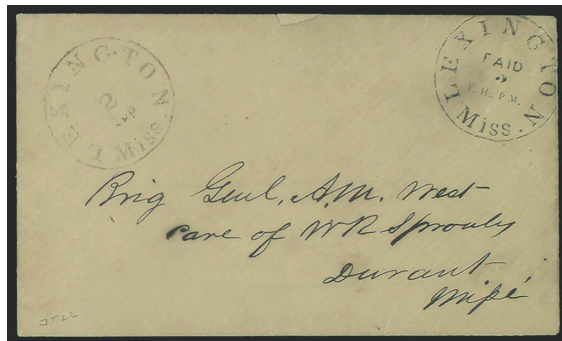 LEXINGTON
Miss.
2
Sep
LEXINGTON
PAID
P.M.
Miss.
Brig Genl, A.M. West
care of W R Sprouls
Durant
Mipé
2522